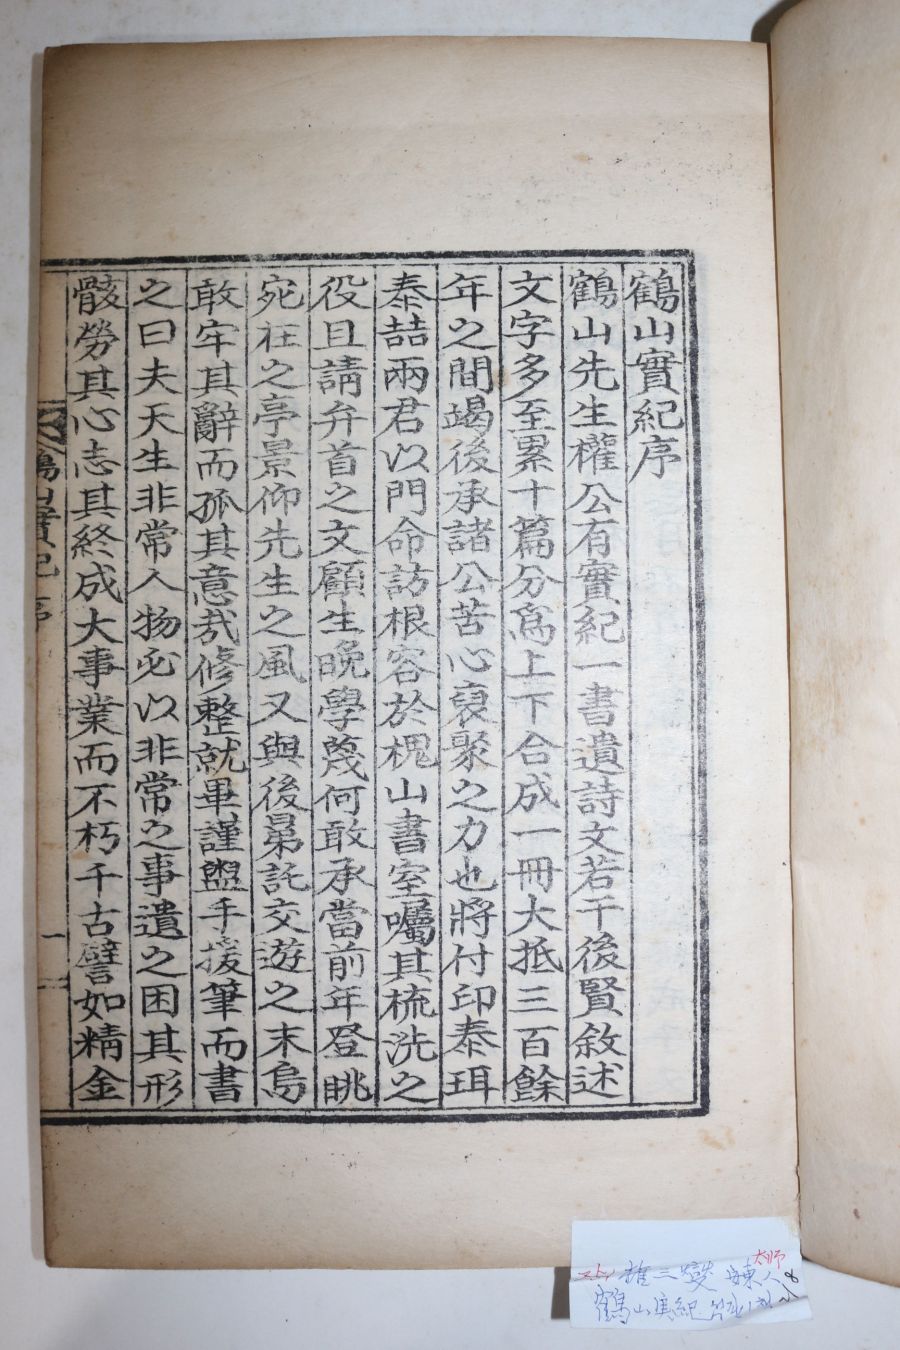 鶴山實紀序
鶴山先生權公有實紀一書遺詩文若干後賢敘述
文字多至累十篇分爲上下合成一冊大抵三百餘
年之間竭後承諸公苦心裒聚之力也將付印泰珥
泰喆兩君以門命訪根容於槐山書室囑其梳洗之
役且請弁首之文顧生晚學蔑何敢承當前年登眺
宛在之亭景仰先生之風又與後昺託交遊之末烏
敢牢其辭而孤其意哉修整就畢謹盥手援筆而書
之曰夫天生非常人物必以非常之事遺之困其形
骸勞其心志其終成大事業而不朽千古譬如精金
鶴山實紀 序 一
鶴山実紀